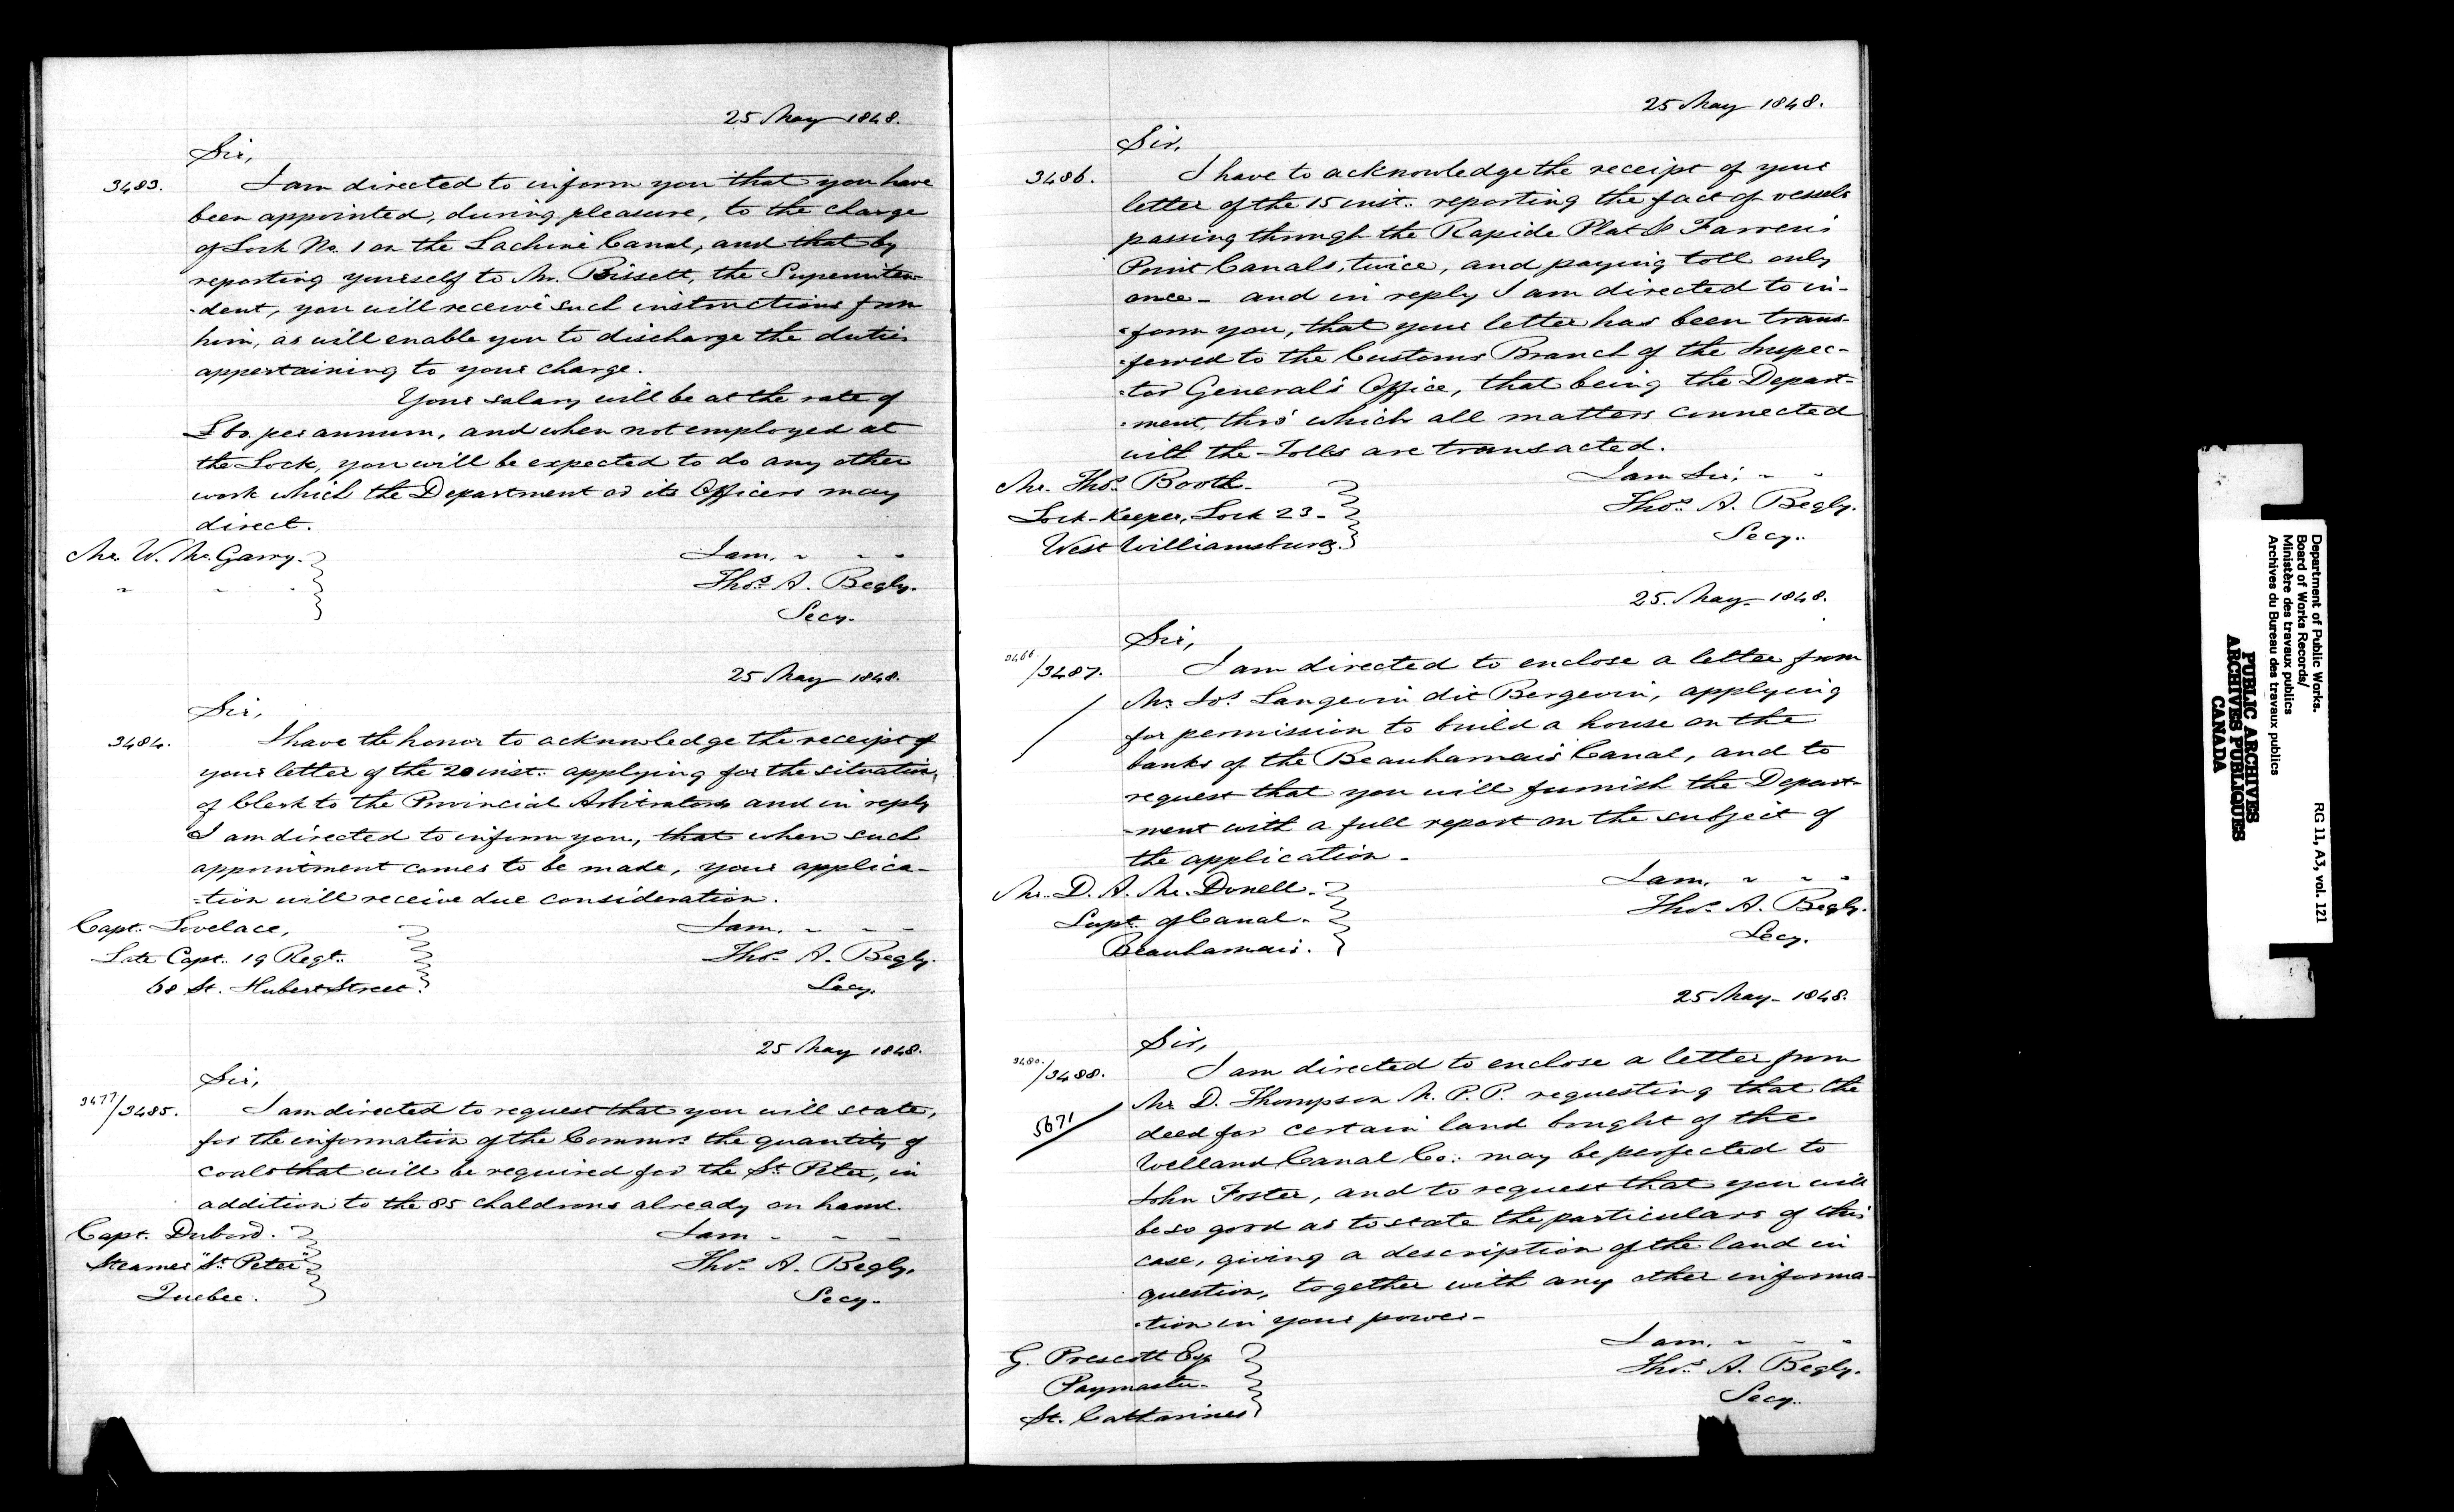 25 May 1848.
Sir,
3483. I am directed to inform you that you have
been appointed, during pleasure, to the charge
of Lock No. 1 on the Lachine Canal, and that by
reporting yourself to Mr. Bissett, the Superinten-
-dent, you will receive such instructions from
him, as will enable you to discharge the duties
appertaining to your charge.
Your salary will be at the rate of
per annum, and when not employed at
the Lock, you will be expected to do any other
work which the Department or its Officers may
direct.
Mr. W. Mc. Garry.
I am,
Thos. A. Begly.
Secy.
25 May 1848.
Sir,
3484. I have the honor to acknowledge the receipt of
your letter of the 20 inst. applying for the situation,
of Clerk to the Provincial Arbitrators and in reply
I am directed to inform you, that when such
appointment comes to be made, your applica-
-tion will receive due consideration.
Capt. Lovelace,
Late Capt. 19 Regt.
68 St. Hubert Street.
I am,
Thos. A. Begly.
Secy.
25 May 1848.
Sir,
3477/3485. I am directed to request that you will state,
for the information of the Commrs. the quantity of
coals that will be required for the St. Peter, in
addition to the 85 chaldrons already on hand.
Capt. Dubord.
Steamer "St. Peter"
Quebec.
I am
Thos. A. Begly.
Secy.
25 May 1848.
Sir,
3486. I have to acknowledge the receipt of your
letter of the 15 inst. reporting the fact of vessels
passing through the Rapide Plat & Farren's
Point Canals, twice, and paying toll only
once - and in reply I am directed to in-
-form you, that your letter has been trans-
-ferred to the Customs Branch of the Inspec-
-tor General's Office, that being the Depart-
-ment, thro' which all matters connected
with the Tolls are transacted.
Mr. Thos. Booth.
Lock-Keeper, Lock 23 -
West Williamsburg.
I am Sir,
Thos. A. Begly.
Secy.
25. May. 1848.
Sir,
3466./3487. I am directed to enclose a letter from
Mr. Jos. Langevin dit Bergevin, applying
for permission to build a house on the
banks of the Beauharnais Canal, and to
request that you will furnish the Depart-
-ment with a full report on the subject of
the application -
Mr. D. A. Mc. Donell.
Supt. of Canal.
Beauharnais.
I am,
Thos. A. Begly.
Secy.
25 May - 1848.
Sir,
3480./3488. I am directed to enclose a letter from
5671
Mr. D. Thompson M. P. P. requesting that the
deed for certain land bought of the
Welland Canal Co: may be perfected to
John Foster, and to request that you will
be so good as to state the particulars of this
case, giving a description of the land in
question, together with any other informa-
-tion in your power -
G. Prescott Esq
Paymaster -
St. Catharines
I am,
Thos. A. Begly.
Secy.
Department of Public Works.
Board of Works Records/
Ministère des travaux publics
Archives du Bureau des travaux publics
RG 11, A3, vol. 121
PUBLIC ARCHIVES
ARCHIVES PUBLIQUES
CANADA